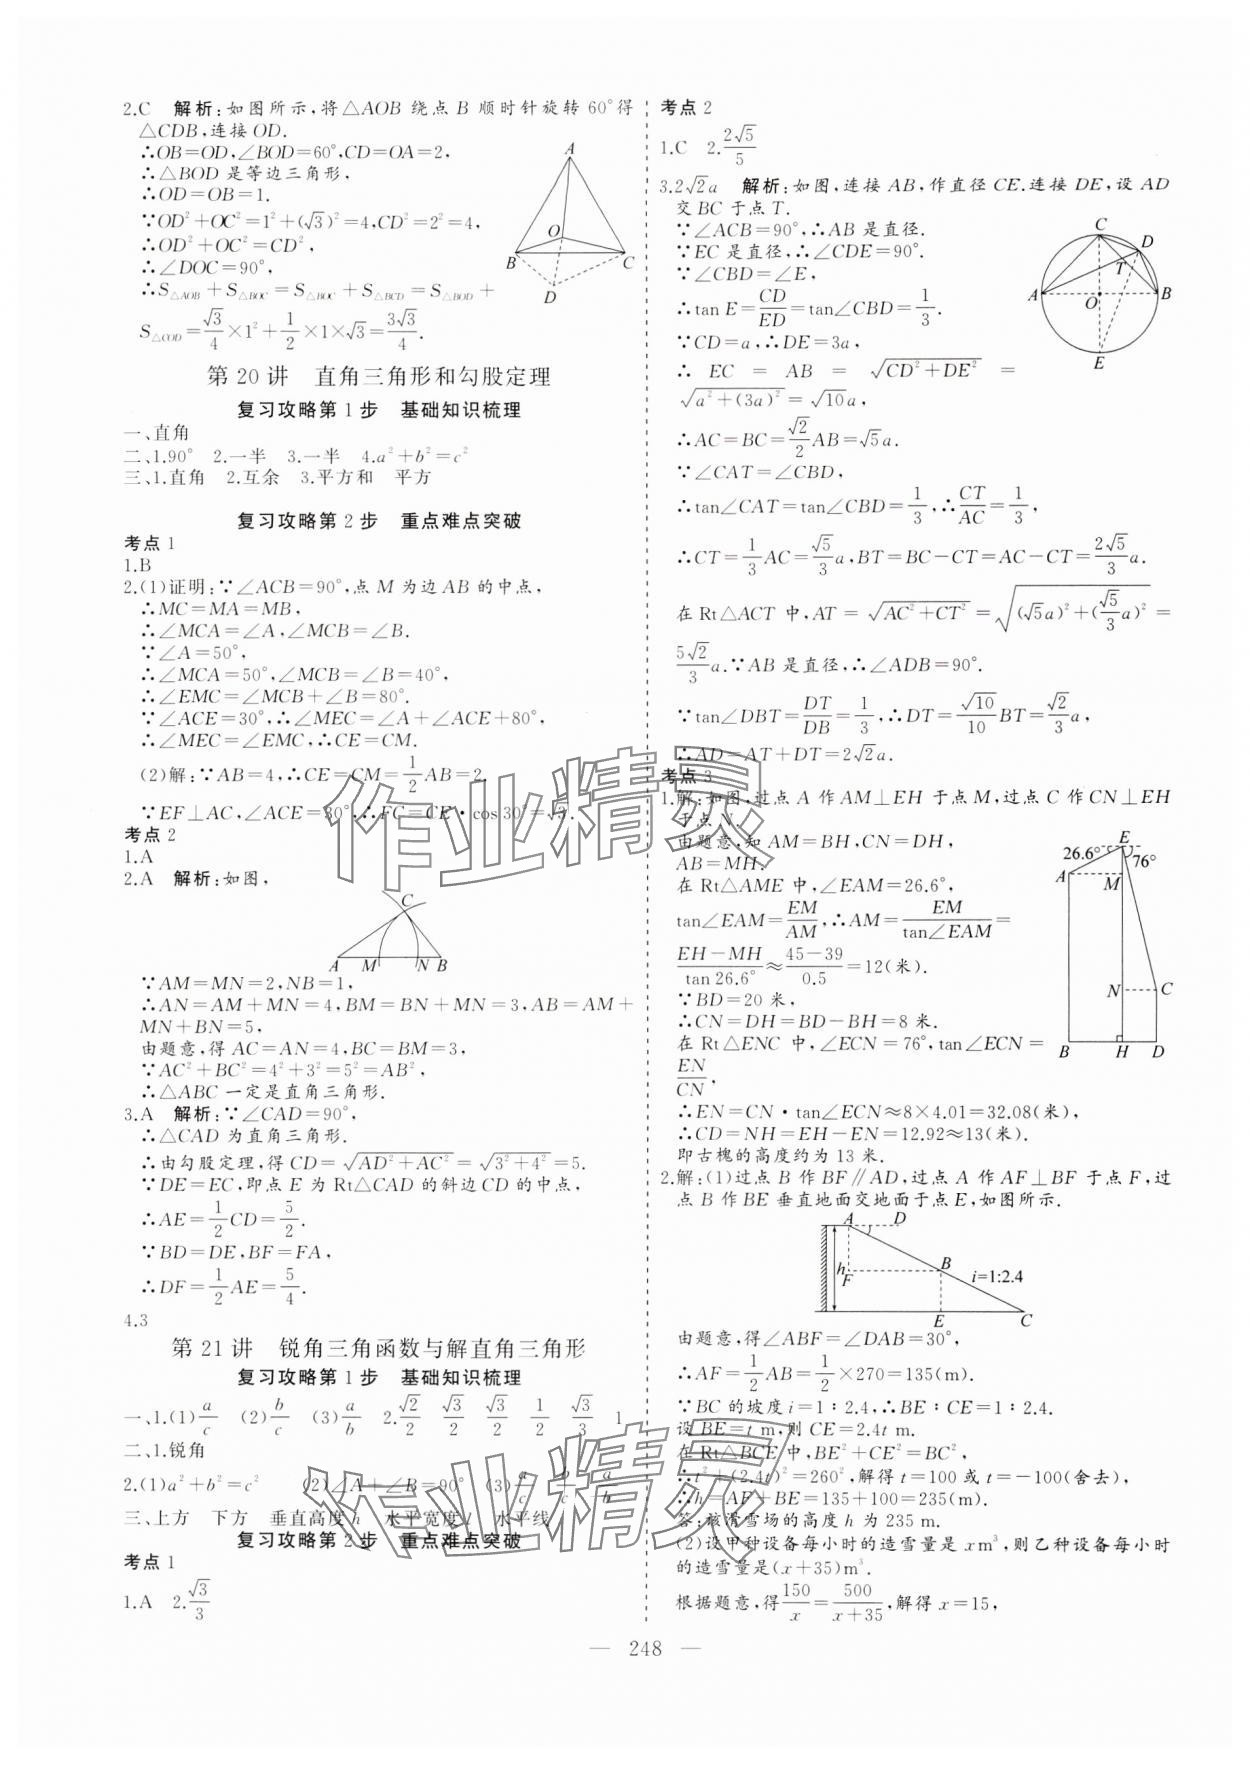 2.C　解析:如图所示,将△AOB 绕点 B 顺时针旋转 60°得
△CDB,连接 OD.
∴OB=OD,∠BOD=60°,CD=OA=2,
∴△BOD 是等边三角形,
∴OD=OB=1.
∵OD²+OC²=1²+(√3)²=4,CD²=2²=4,
∴OD²+OC²=CD²,
∴∠DOC=90°,
∴S△AOB+S△BOC=S△BOC+S△BCD=S△BOD+
S△COD=√3/4×1²+1/2×1×√3=3√3/4.
A
O
B
C
D
第 20 讲　直角三角形和勾股定理
复习攻略第 1 步　基础知识梳理
一、直角
二、1.90°　2.一半　3.一半　4.a²+b²=c²
三、1.直角　2.互余　3.平方和　平方
复习攻略第 2 步　重点难点突破
考点 1
1.B
2.(1)证明:∵∠ACB=90°,点 M 为边 AB 的中点,
∴MC=MA=MB,
∴∠MCA=∠A,∠MCB=∠B.
∵∠A=50°,
∴∠MCA=50°,∠MCB=∠B=40°,
∴∠EMC=∠MCB+∠B=80°.
∵∠ACE=30°,∴∠MEC=∠A+∠ACE+80°,
∴∠MEC=∠EMC,∴CE=CM.
(2)解:∵AB=4,∴CE=CM=1/2AB=2.
∵EF⊥AC,∠ACE=30°,∴FC=CE·cos30°=√3.
考点 2
1.A
2.A　解析:如图,
C
A M N B
∵AM=MN=2,NB=1,
∴AN=AM+MN=4,BM=BN+MN=3,AB=AM+
MN+BN=5,
由题意,得 AC=AN=4,BC=BM=3,
∵AC²+BC²=4²+3²=5²=AB²,
∴△ABC 一定是直角三角形.
3.A　解析:∵∠CAD=90°,
∴△CAD 为直角三角形.
∴由勾股定理,得 CD=√(AD²+AC²)=√(3²+4²)=5.
∵DE=EC,即点 E 为 Rt△CAD 的斜边 CD 的中点,
∴AE=1/2CD=5/2.
∵BD=DE,BF=FA,
∴DF=1/2AE=5/4.
4.3
第 21 讲　锐角三角函数与解直角三角形
复习攻略第 1 步　基础知识梳理
一、1.(1)a/c　(2)b/c　(3)a/b　2.√2/2　√3/2　√3/2　1/2　√3/3　1
二、1.锐角
2.(1)a²+b²=c²　(2)∠A+∠B=90°　(3)a/c　b/c　a/b
三、上方　下方　垂直高度 h　水平宽度 l　水平线
复习攻略第 2 步　重点难点突破
考点 1
1.A　2.√3/3
考点 2
1.C　2.2√5/5
3.2√2a　解析:如图,连接 AB,作直径 CE.连接 DE,设 AD
交 BC 于点 T.
∵∠ACB=90°,∴AB 是直径.
∵EC 是直径,∴∠CDE=90°.
∵∠CBD=∠E,
∴tan E=CD/ED=tan∠CBD=1/3.
∵CD=a,∴DE=3a,
∴ EC = AB = √(CD²+DE²) =
√(a²+(3a)²)=√10a,
∴AC=BC=√2/2AB=√5a.
∵∠CAT=∠CBD,
∴tan∠CAT=tan∠CBD=1/3,∴CT/AC=1/3,
∴CT=1/3AC=√5/3a,BT=BC-CT=AC-CT=2√5/3a.
在 Rt△ACT 中,AT=√(AC²+CT²)=√((√5a)²+(√5/3a)²)=
5√2/3a.∵AB 是直径,∴∠ADB=90°.
∵tan∠DBT=DT/DB=1/3,∴DT=√10/10BT=√2/3a,
∴AD=AT+DT=2√2a.
C
D
T
A
O
B
E
考点 3
1.解:如图,过点 A 作 AM⊥EH 于点 M,过点 C 作 CN⊥EH
于点 N.
由题意,知 AM=BH,CN=DH,
AB=MH.
在 Rt△AME 中,∠EAM=26.6°,
tan∠EAM=EM/AM,∴AM=EM/tan∠EAM=
(EH-MH)/tan 26.6°≈(45-39)/0.5=12(米).
∵BD=20 米,
∴CN=DH=BD-BH=8 米.
在 Rt△ENC 中,∠ECN=76°,tan∠ECN=
EN/CN,
∴EN=CN·tan∠ECN≈8×4.01=32.08(米),
∴CD=NH=EH-EN=12.92≈13(米).
即古槐的高度约为 13 米.
E
26.6°
76°
A
M
N
C
B H D
2.解:(1)过点 B 作 BF∥AD,过点 A 作 AF⊥BF 于点 F,过
点 B 作 BE 垂直地面交地面于点 E,如图所示.
A
D
h
F
B
i=1:2.4
E
C
由题意,得∠ABF=∠DAB=30°,
∴AF=1/2AB=1/2×270=135(m).
∵BC 的坡度 i=1∶2.4,∴BE∶CE=1∶2.4.
设 BE=t m,则 CE=2.4t m.
在 Rt△BCE 中,BE²+CE²=BC²,
∴t²+(2.4t)²=260²,解得 t=100 或 t=-100(舍去),
∴h=AF+BE=135+100=235(m).
答:该滑雪场的高度 h 为 235 m.
(2)设甲种设备每小时的造雪量是 x m³,则乙种设备每小时
的造雪量是(x+35)m³.
根据题意,得150/x=500/(x+35),解得 x=15,
— 248 —
作业精灵
作业精灵